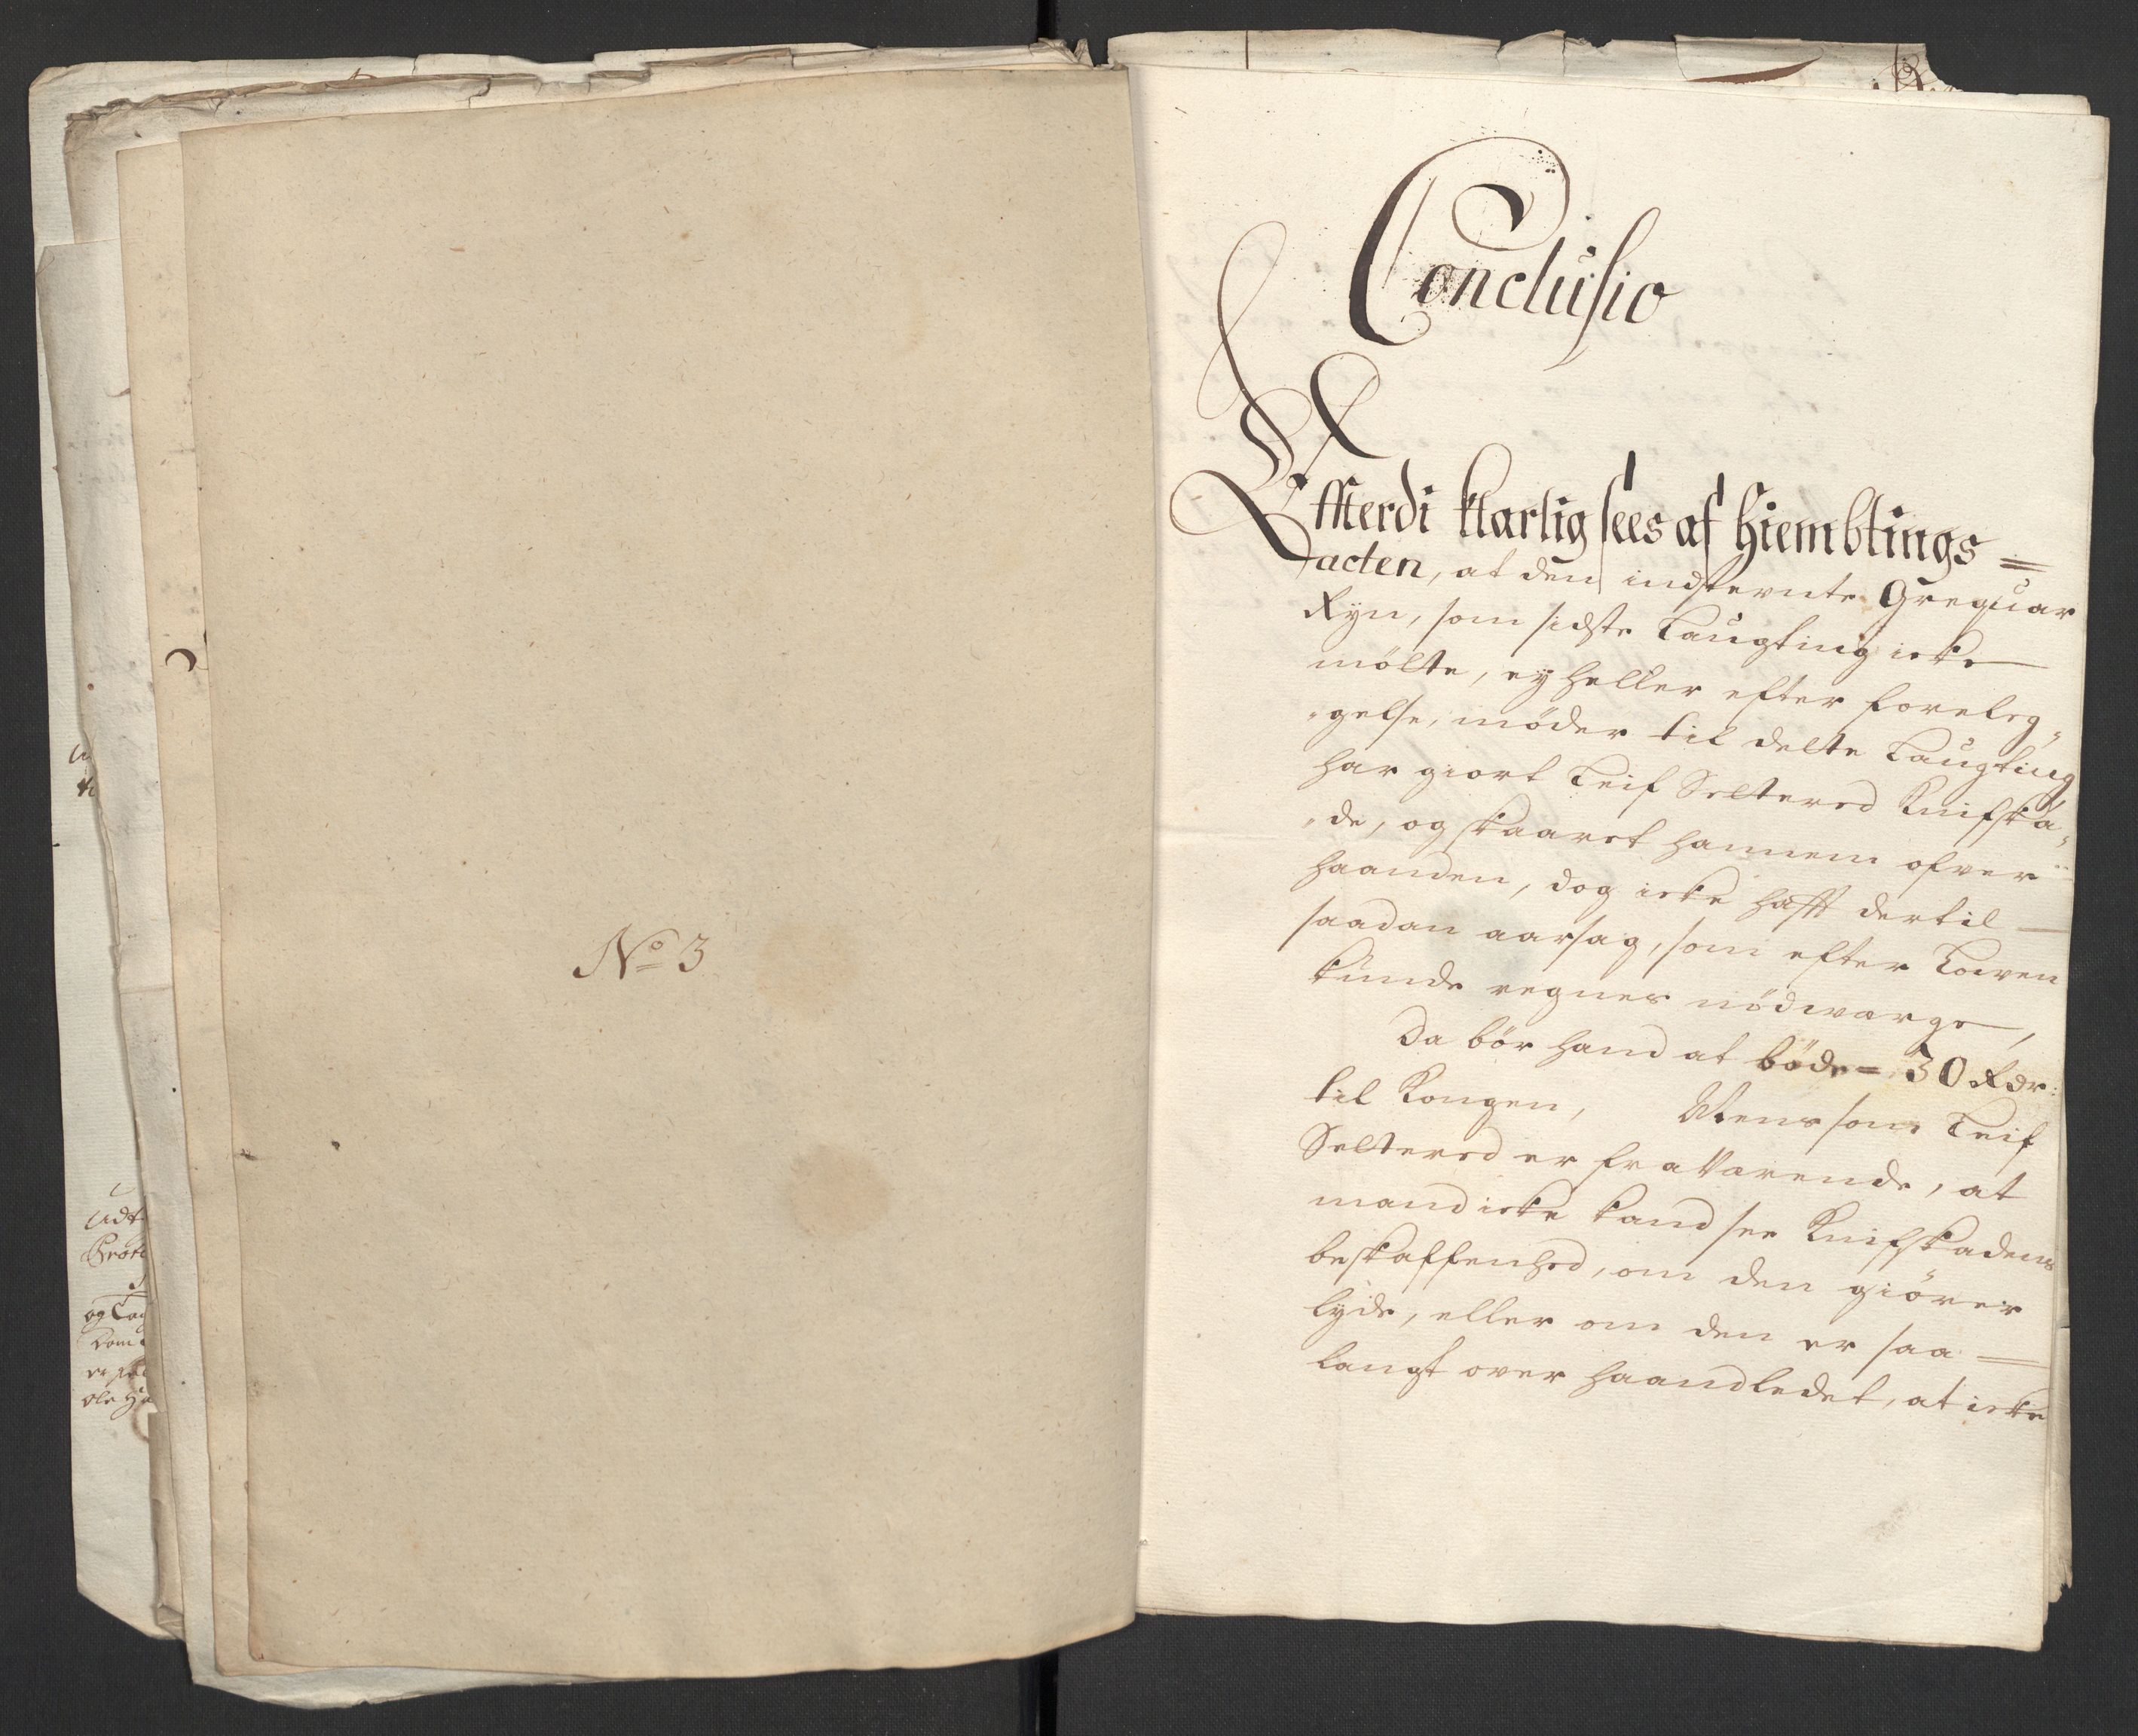 No 3
Conclusio
Effterdi klarlig sees af Hiembtings=
acten, at den indstevnte Greguar
Ryn, som sidste Laugting icke
mötte, ey heller efter foreleg„
„gelse, möder til dette Laugting
har giort Leif Selteröd Knifska„
„de, og skaaret hannem ofver
haanden, dog icke hafft dertil
saadan aarsag, som efter Lowen
kunde regnes nödwærge,
Da bör hand at böde = 30 Rdr:
til Kongen, Mens som Leif
Selteröd er fraværende, at
mand icke kand see Knifskadens
beskaffenhed, om den giörer
lyde, eller om den er saa
langt over haandledet, at icke
Udt
og La
Ole H